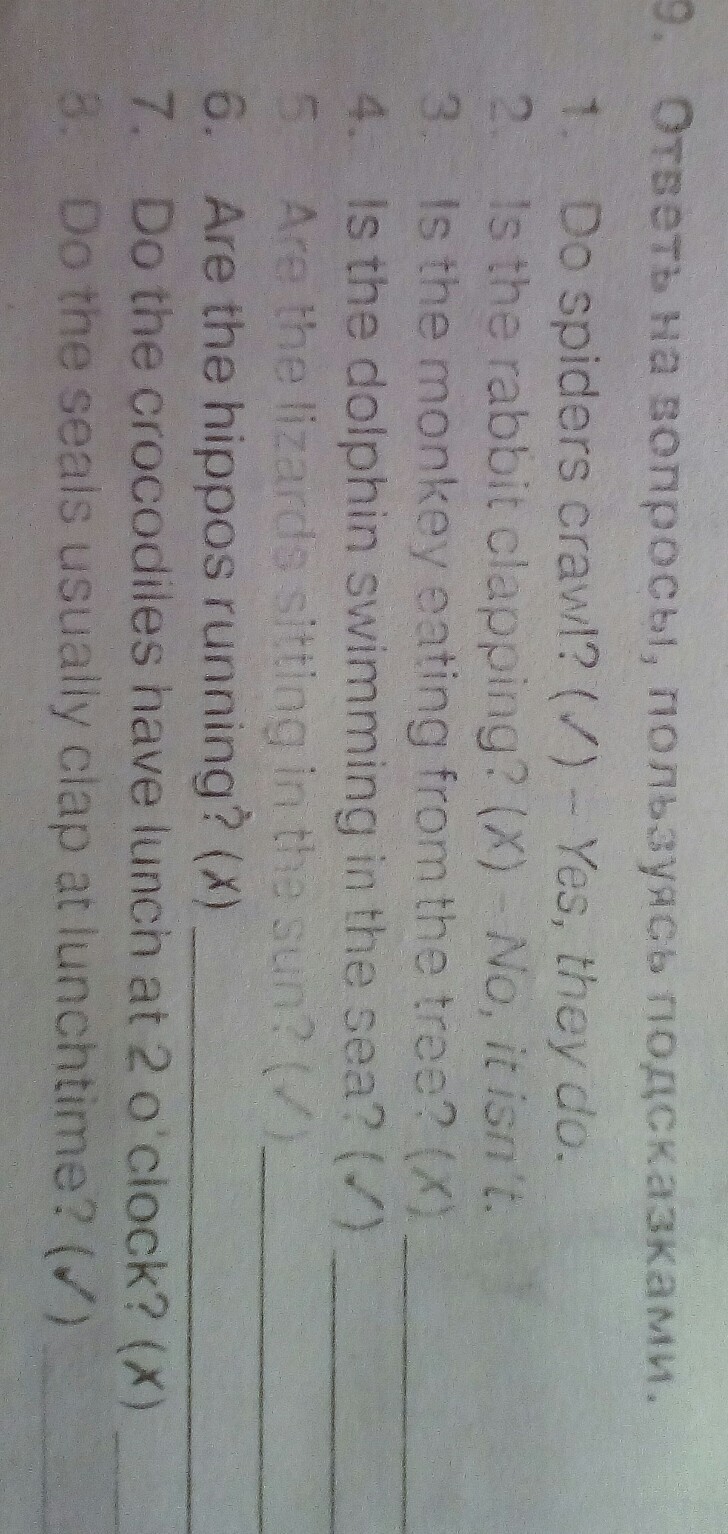 9. Ответь на вопросы, пользуясь подсказками.
1. Do spiders crawl? (✓) – Yes, they do.
2. Is the rabbit clapping? (X) – No, it isn't.
3. Is the monkey eating from the tree? (X)
4. Is the dolphin swimming in the sea? (✓)
5. Are the lizards sitting in the sun? (✓)
6. Are the hippos running? (X)
7. Do the crocodiles have lunch at 2 o'clock? (X)
8. Do the seals usually clap at lunchtime? (✓)